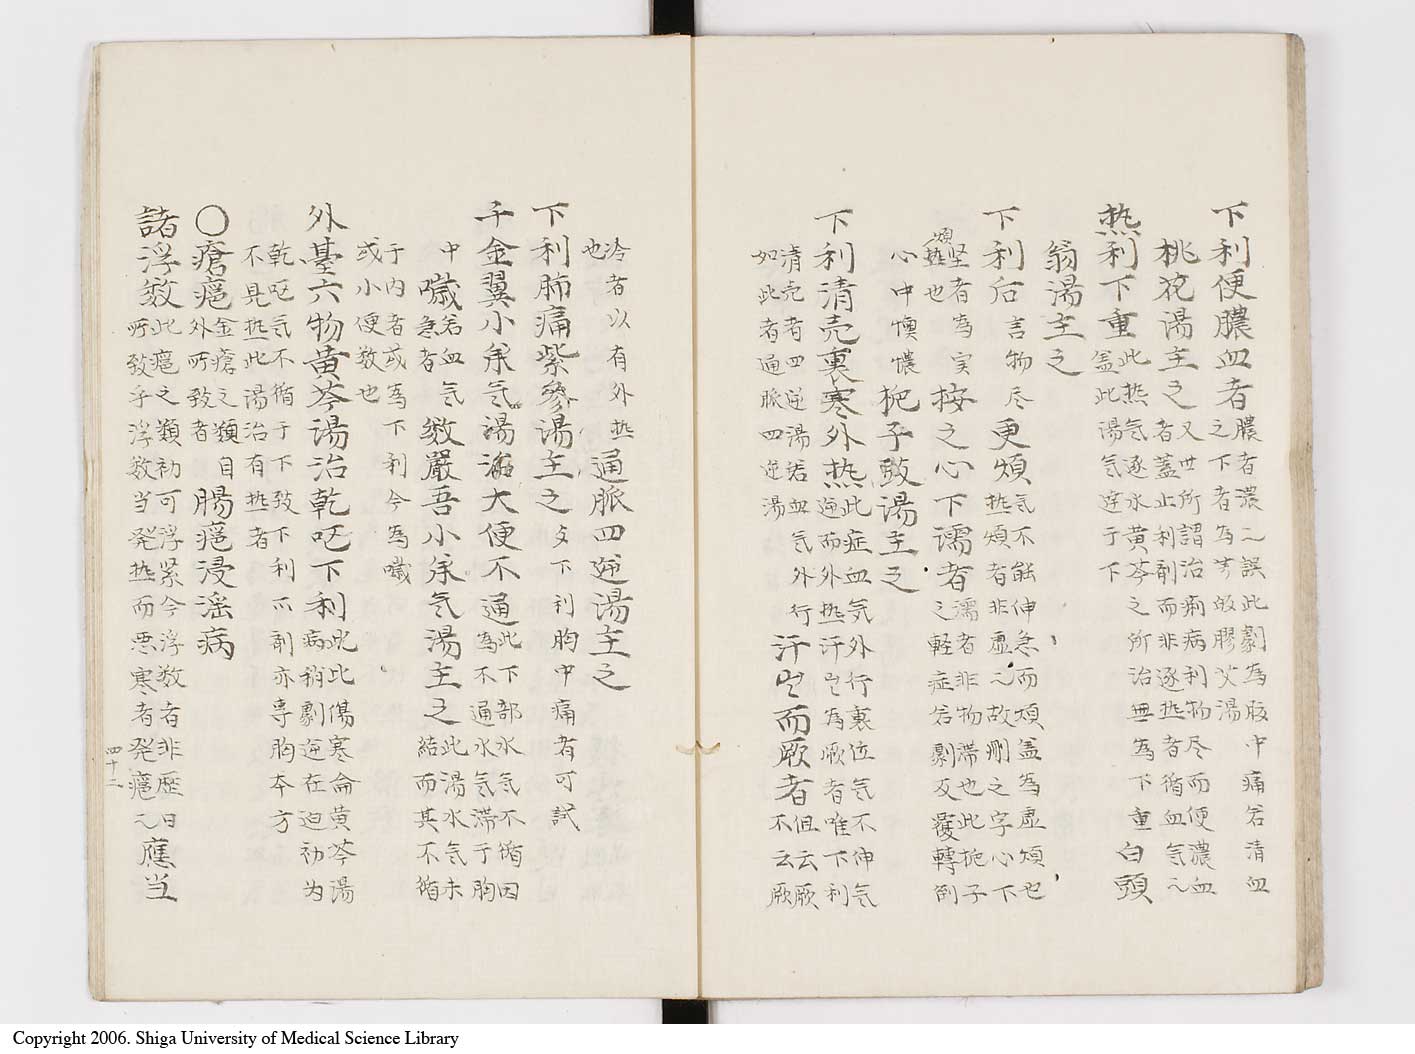 下利便膿血者膿者濃々誤此劇為腹中痛若清血
之下者為芎敀膠艾湯
桃花湯主之又世所謂治痢病利物尽而便濃血
者蓋止利剤而非逐热者循血気々
热利下重此热気逐水黄芩之所治無為下重白頭
蓋此湯気逹于下
翁湯主之
下利后言物尽更煩気不能伸急而煩蓋為虚煩也
热煩者非虚々故刪之字心下
坚者為実按之心下濡者濡者非物滞也此梔子
煩热也之軽症若劇反覆轉倒
心中懊憹梔子豉湯主之
下利清売裏寒外热此症血気外行裏位気不伸気
逆而外热汗出為厥者唯下利
清売者四逆湯若血気外行汗出而厥者但云厥
如此者通脈四逆湯不云厥
冷者以有外热通脈四逆湯主之
也
下利肺痛紫參湯主之攴下利胸中痛者可試
千金翼小承气湯治大便不通此下部水気不循因
為不通水気滞于胸
中噦若血気數嚴吾小承気湯主之此湯水気未
急者結而其不循
于内者或為下利今為噦
或小便数也
外臺六物黄芩湯治乾呕下利此此傷寒侖黄芩湯
病稍劇逆在迫初为
乾呕気不循于下致下利爪剤亦専胸夲方
不見热此湯治有热者
〇瘡癰金瘡之類自腸癰浸滛病
外所致者
諸浮數此癰之類初可浮緊今浮数者非歷日應当
所致乎浮数当発热而悪寒者発癰々
四十二
Copyright 2006. Shiga University of Medical Science Library